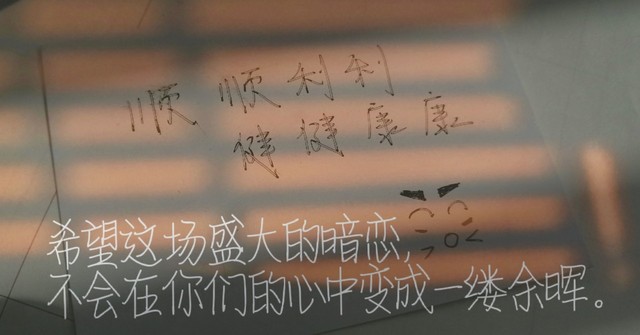 顺顺利利
健健康康
希望这场盛大的暗恋,
不会在你们的心中变成一缕余晖。